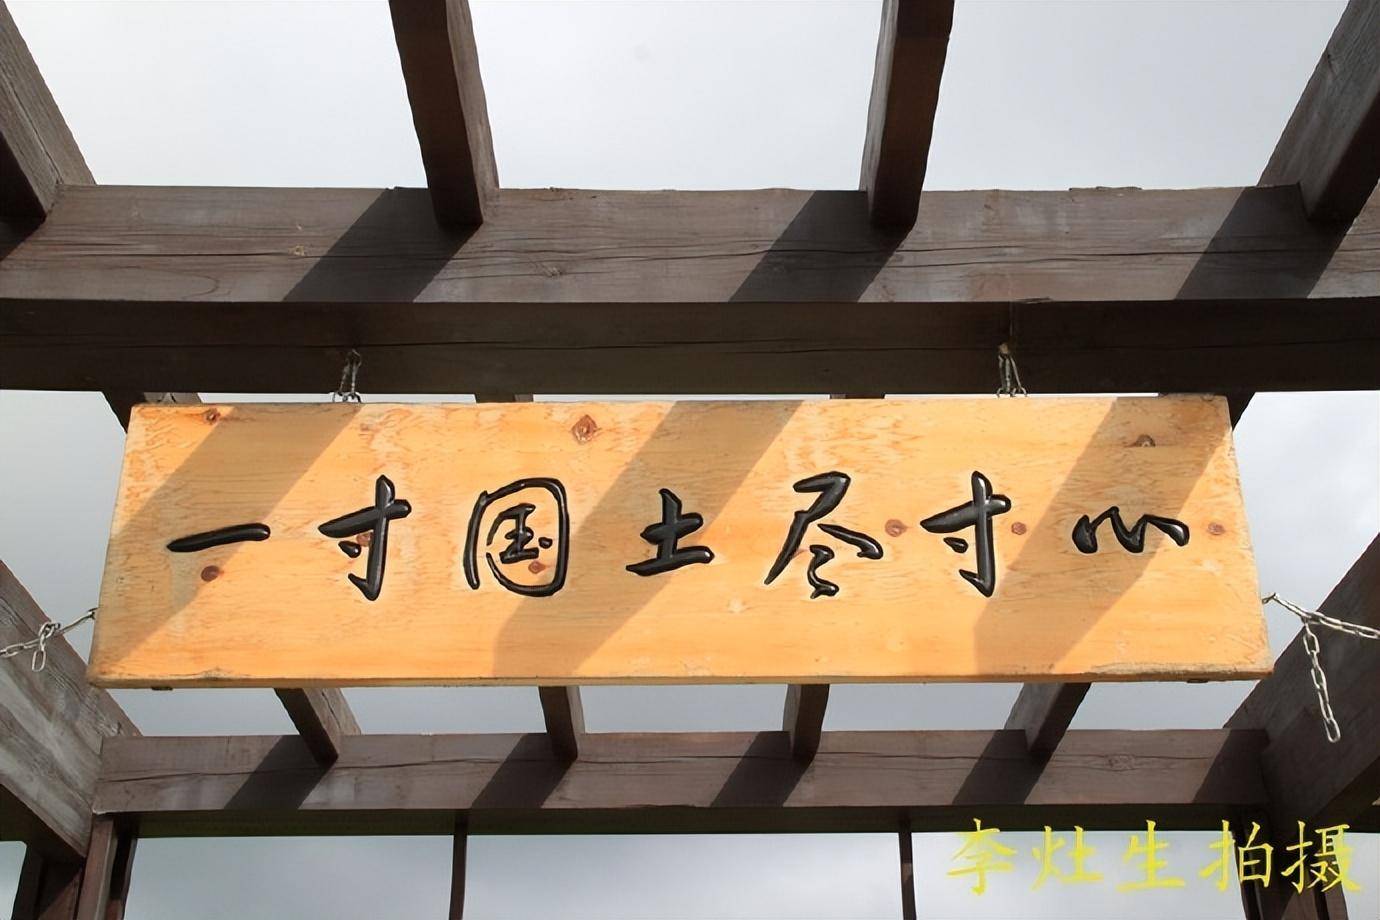 一寸国土尽寸心
李灶生拍摄